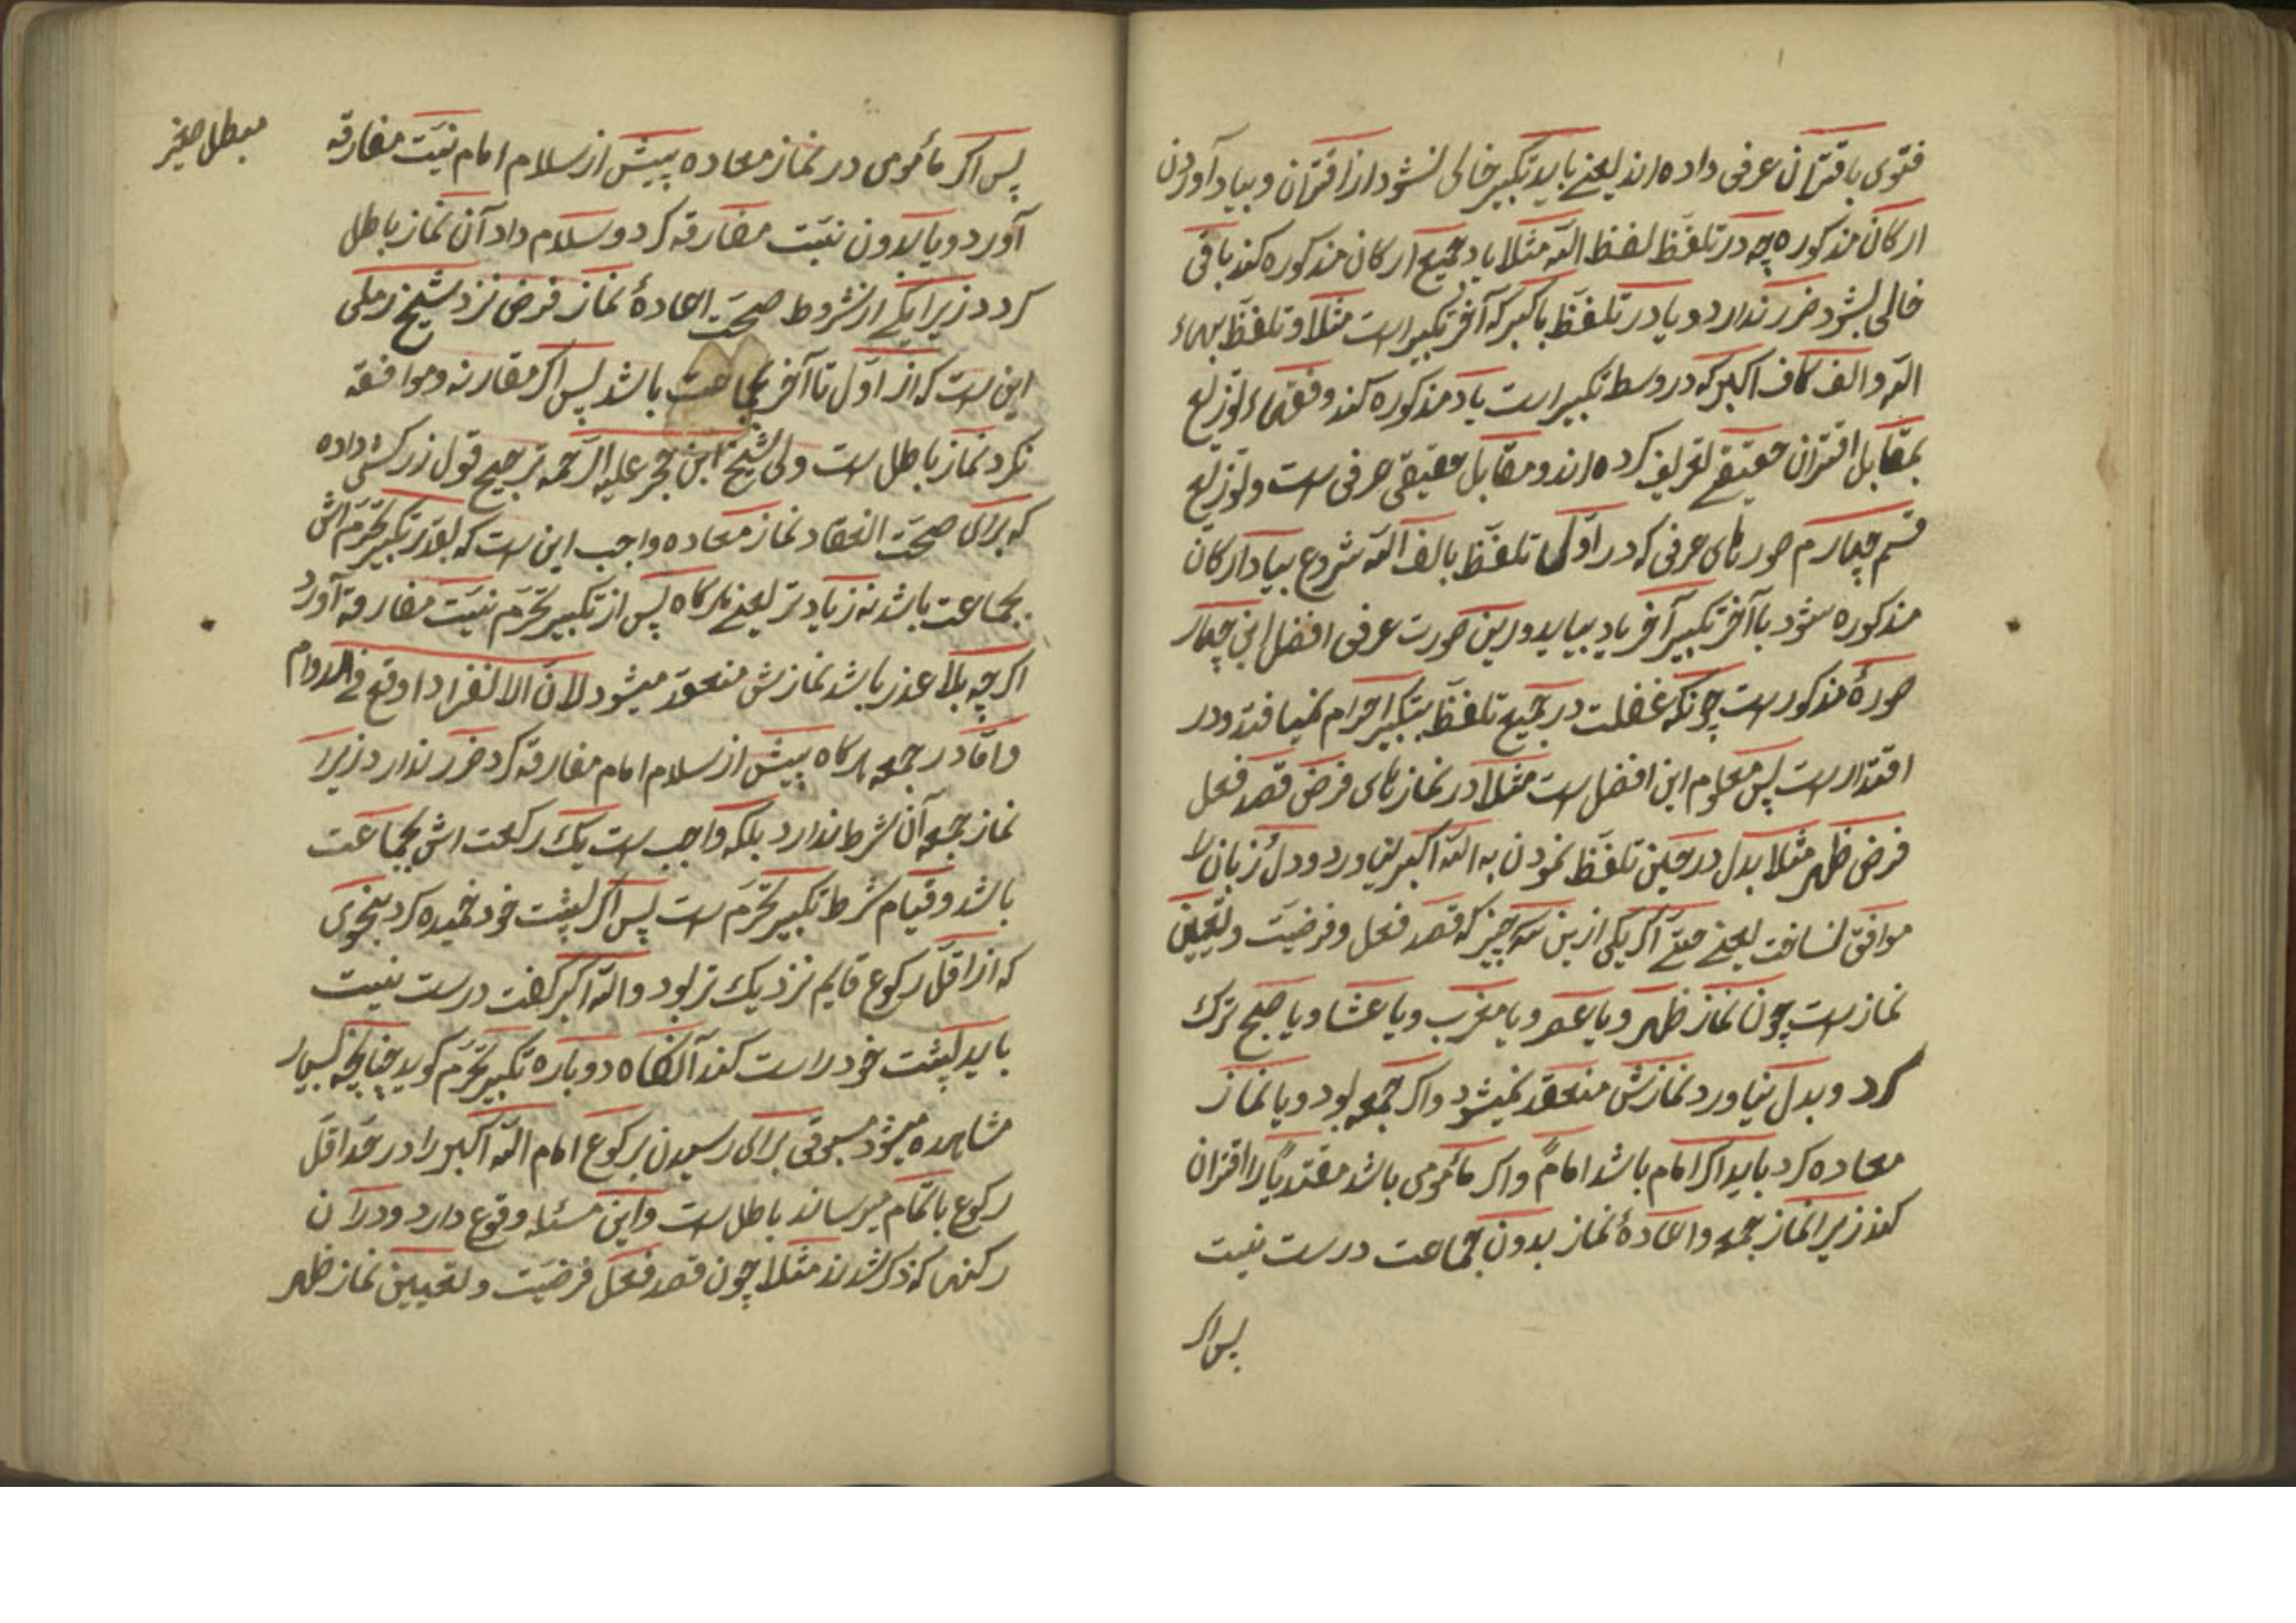 فتوی باقتران عرفی داده‌اند یعنے باید تکبیر خالی نشود از اقتران و بیاد آوردن
ارکان مذکوره چه در تلفّظ لفظ اللّه مثلا یاد جمیع ارکان مذکوره کند باقی
خالی بشود ضرر ندارد و یا در تلفّظ باکبر که آخر تکبیر است مثلا و تلفّظ بهاء
اللّه و الف کاف اکبر که در وسط تکبیر است یاد مذکوره کند و فقهاء توزیع
بمقابل اقتران حقیقے تعریف کرده‌اند و مقابل حقیقی عرفی است و توزیع
قسم چهارم صورتهای عرفی که در اوّل تلفّظ بالف اللّه شروع بیاد ارکان
مذکوره شود با آخر تکبیر آخر یاد بیاید و درین صورت عرفی افضل این چهار
صورهٔ مذکور است چونکه غفلت در جمیع تلفّظ بتکبیر احرام نمیافتد و در
اقتدار است پس معلوم این افضل است مثلا در نمازهای فرض قصد فعل
فرض ظهر مثلا بدل در حین تلفّظ نمودن به اللّه اکبر نیاورد و دل زبان را
موافق نساخت یعنے حتّے اگر یکی ازین سه چیز که قصد فعل و فرضیّت و تعیین
نماز است چون نماز ظهر و یا عصر و یا مغرب و یا عشا و یا صبح ترک
کرد و بدل نیاورد نمازش منعقد نمیشود و اگر جمعه بود و یا نماز
معاده کرد باید اگر امام باشد اماماً و اگر مأمومی باشد مقتدیاً را اقتران
کند زیرا نماز جمعه و اعادهٔ نماز بدون جماعت درست نیست
پس اگر
پس اگر مأمومی در نماز معاده پیش از سلام امام نیّت مفارقه
آورد و یا بدون نیّت مفارقه کرد و سلام داد آن نماز باطل
کرد زیرا یکے از شروط صحّت اعادهٔ نماز فرض نزد شیخ رملی
این است که از اوّل تا آخر بجماعت باشد پس اگر مقارنه و موافقه
نکرد نماز باطل است ولی شیخ ابن حجر علیه الرّحمه ترجیح قول زرکشی داده
که برای صحّت انعقاد نماز معاده واجب این است که بقدر تکبیر تحرّم اش
بجماعت باشد نه زیادتر یعنے هرگاه پس از تکبیر تحرّم نیّت مفارقه آورد
اگرچه بلا عذر باشد نمازش منعقد میشود لانّ الانفراد اوقع فے الدوام
و امّا در جمعه هرگاه پیش از سلام امام مفارقه کرد ضرر ندارد زیرا
نماز جمعه آن شرط ندارد بلکه واجب است یک رکعت اش بجماعت
باشد و قیام شرط تکبیر تحرّم است پس اگر پشت خود خمیده کرد بنحوی
که از اقلّ رکوع قایم نزدیک تر بود و اللّه اکبر گفت درست نیست
باید پشت خود راست کند آنگاه دوباره تکبیر تحرّم گوید چنانچه بسیار
مشاهده میشود مسبوقی برای رسیدن برکوع امام اللّه اکبر را در حدّ اقلّ
رکوع باتمام میرساند باطل است و این مسئله وقوع دارد و در آن
رکنها که ذکر شدند مثلا چون قصد فعل فرضیّت و تعیین نماز ظهر